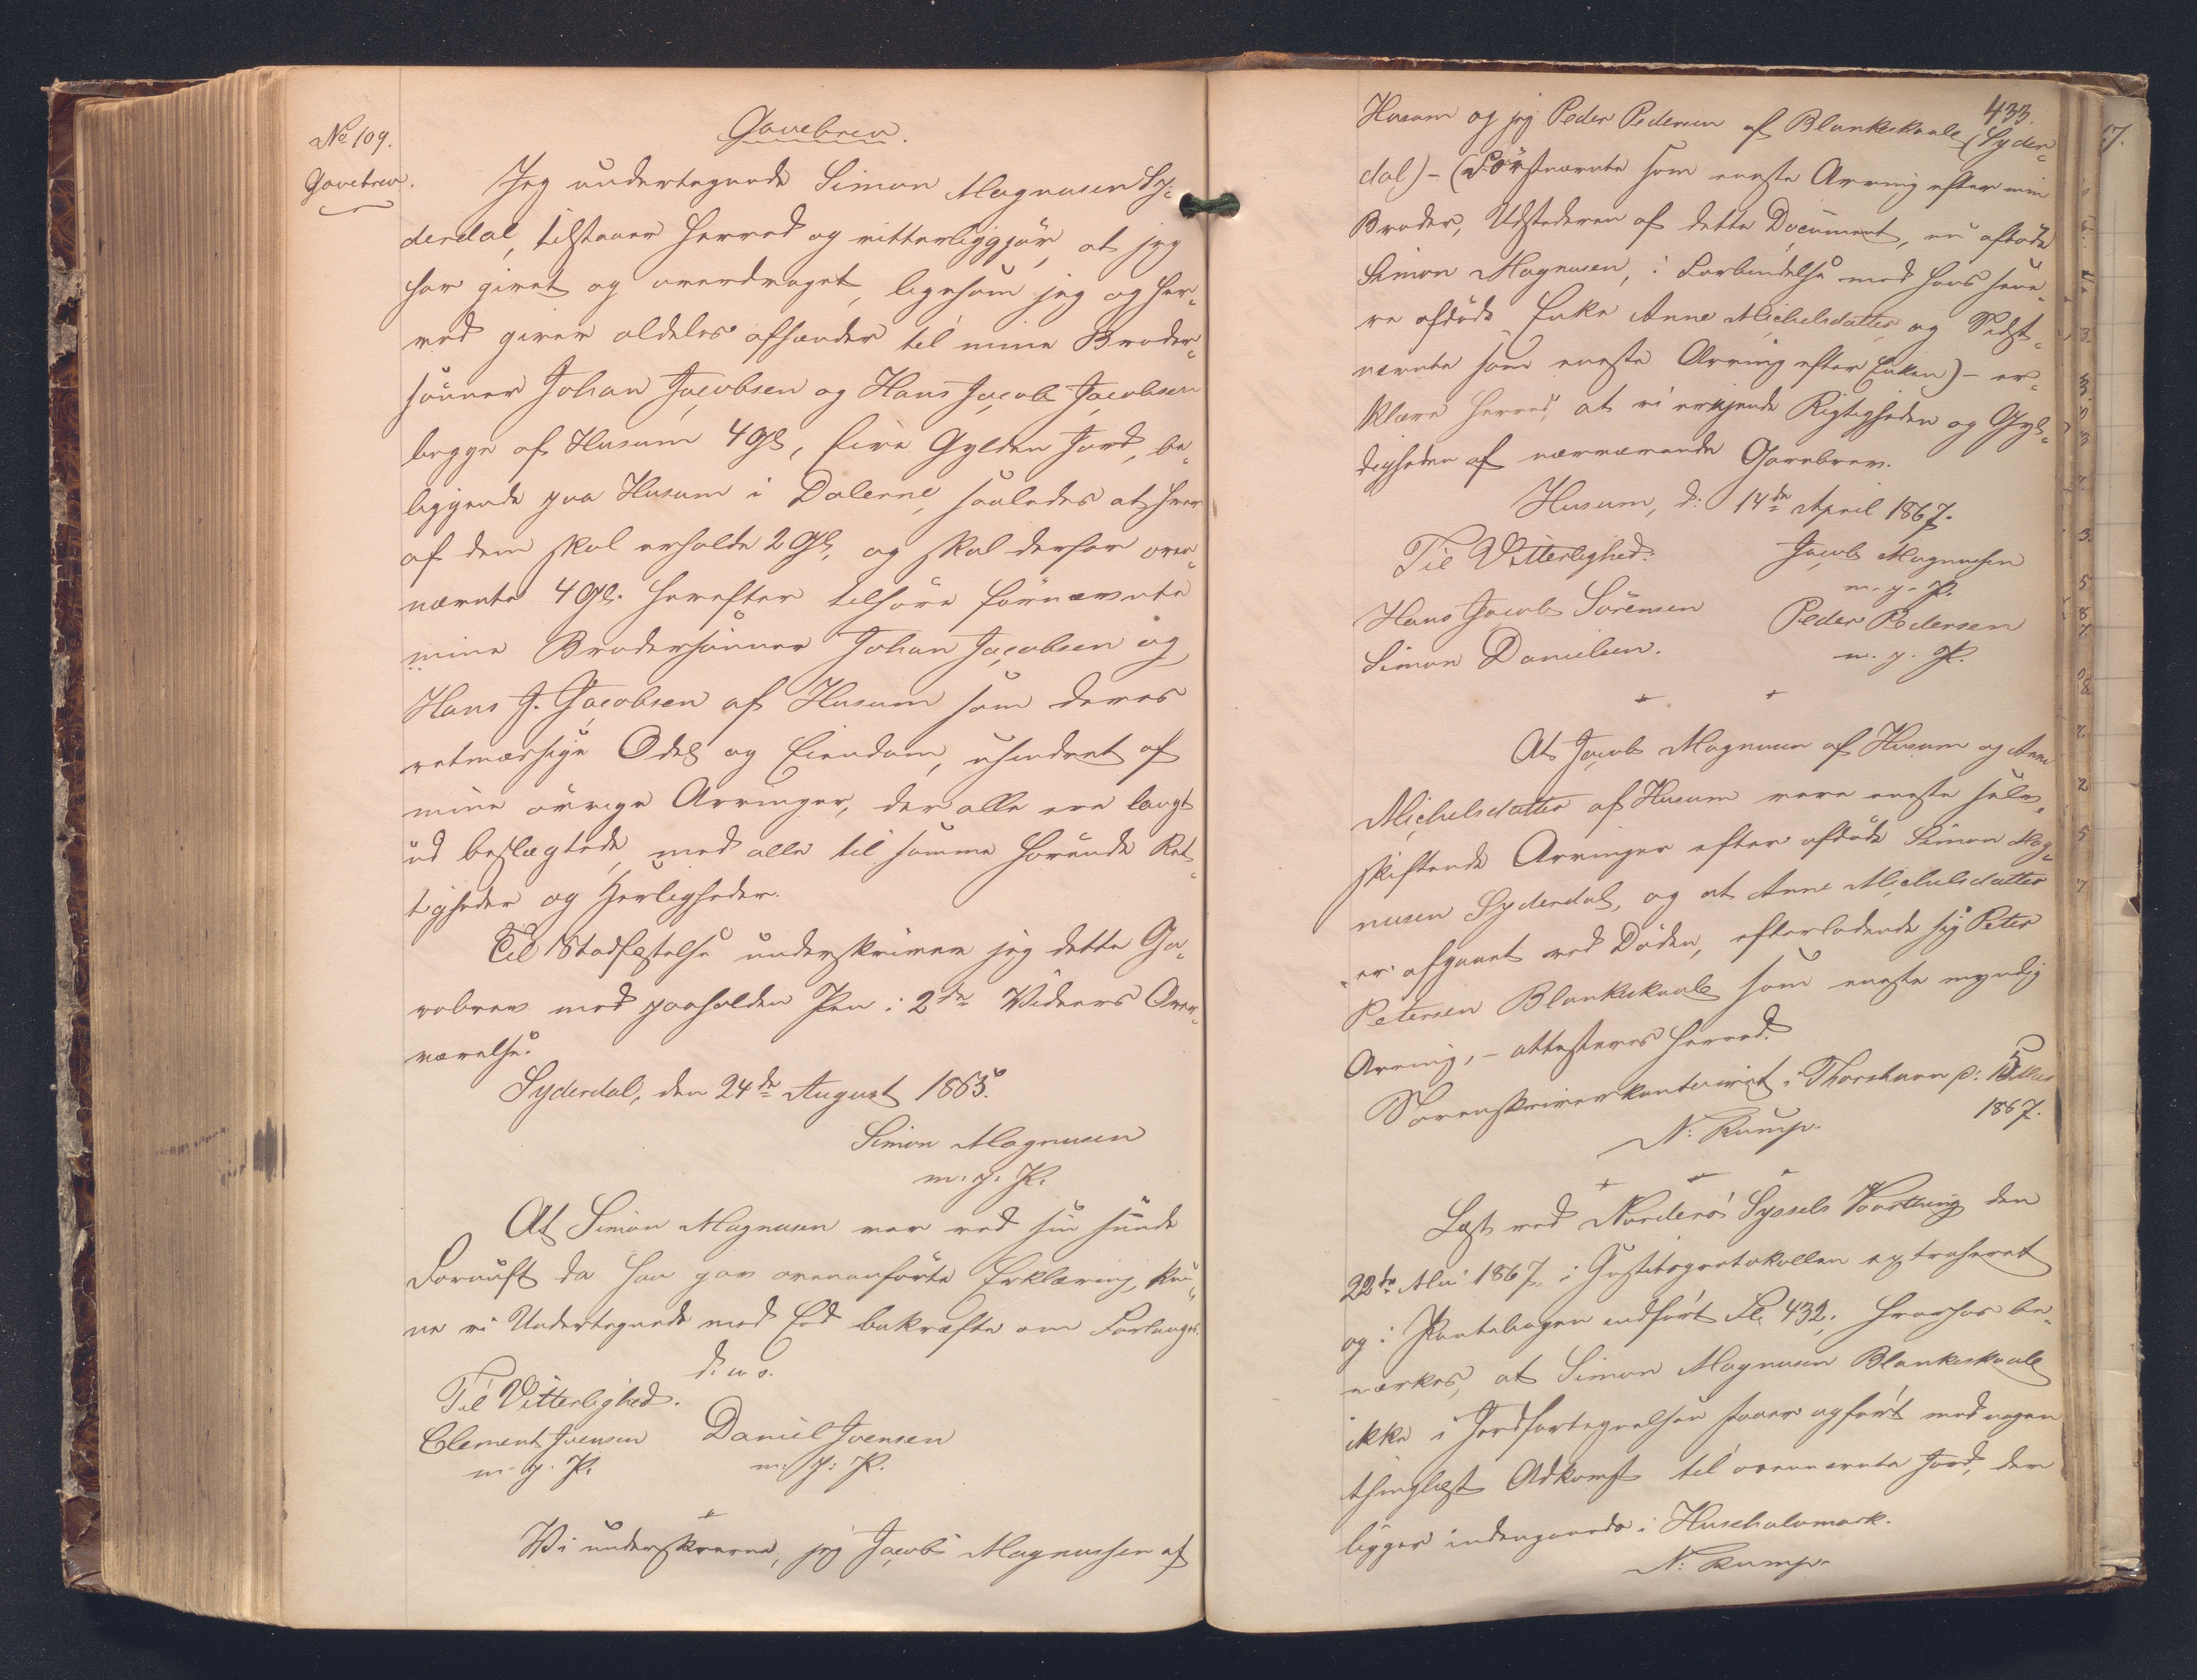 No 109.
Gavebrev.
Gavebrev.
Jeg undertegnede Simon Magnusen Sy-
derdal, tilstaaer herved og vitterliggjör, at jeg
har givet og overdraget, ligesom jeg og her-
ved giver aldeles afhænder til mine Broder-
sönner Johan Jacobsen og Hans Jacob Jacobsen
begge af Husum 4 Gl, fire Gylden Jord, be-
liggende paa Husum i Dalerne, saaledes at hver
af dem skal erholde 2 Gl, og skal derfor oven-
nævnte 4 Gl. herefter tilhöre förnævnte
mine Brodersönner Johan Jacobsen og
Hans J. Jacobsen af Husum som deres
retmæssige Odel og Eiendom, uhindret af
mine övrige Arvinger, der alle ere langt
ud beslægtede, med alle til samme hörende Ret-
tigheder og Herligheder.
Til Stadfæstelse underskriver jeg dette Ga-
vebrev med paaholden Pen i 2de Vidners Over-
værelse.
Syderdal, den 24de August 1863.
Simon Magnusen
m. p. P.
At Simon Magnusen var ved sin sunde
Fornuft da han gav ovenanförte Erklæring, kun-
ne vi Undertegnede med Eed bekræfte om Forlanges.
d. u s.
Til Vitterlighed.
Clement Joensen Daniel Joensen
m. p. P. m. p. P.
Vi underskrevne, jeg Jacob Magnussen af
433.
Husum og jeg Peder Pedersen af Blankeskaale (Syder-
dal) - (Förstnævnte som eneste Arving efter min
Broder, Udstederen af dette Document, nu afdöde
Simon Magnusen, i Forbindelse med hans sene-
re afdöde Enke Anne Michelsdatter og Sidst-
nævnte som eneste Arving efter Enken) - er-
klære herved, at vi erkjende Rigtigheden og Gyl-
digheden af nærværende Gavebrev.
Husum, d: 14de April 1867.
Til Vitterlighed: Jacob Magnussen
m. p. P.
Hans Jacob Sörensen Peder Pedersen
Simon Danielsen. m. p. P.
At Jacob Magnusen af Husum og Anne
Michelsdatter af Husum vare eneste selv-
skiftende Arvinger efter afdöde Simon Mag-
nusen Syderdal, og at Anne Michelsdatter
er afgaaet ved Döden, efterladende sig Peter
Petersen Blankeskaale som eneste myndig
Arving, - attesteres herved.
Sorenskriverkontoiret i Thorshavn d:
1867.
N: Rump.
Læst ved Norderö Syssels Vaarthing den
22de Mai 1867, i Justitsprotokollen extraheret
og i Pantebogen indfört Fl. 432, hvorhos be-
mærkes, at Simon Magnusen Blankeskaale
ikke i Jordfortegnelsen staaer opfört med nogen
thinglæst Adkomst til ovennævnte Jord, der
ligger indengaards i Husehalvmark.
N: Rump.